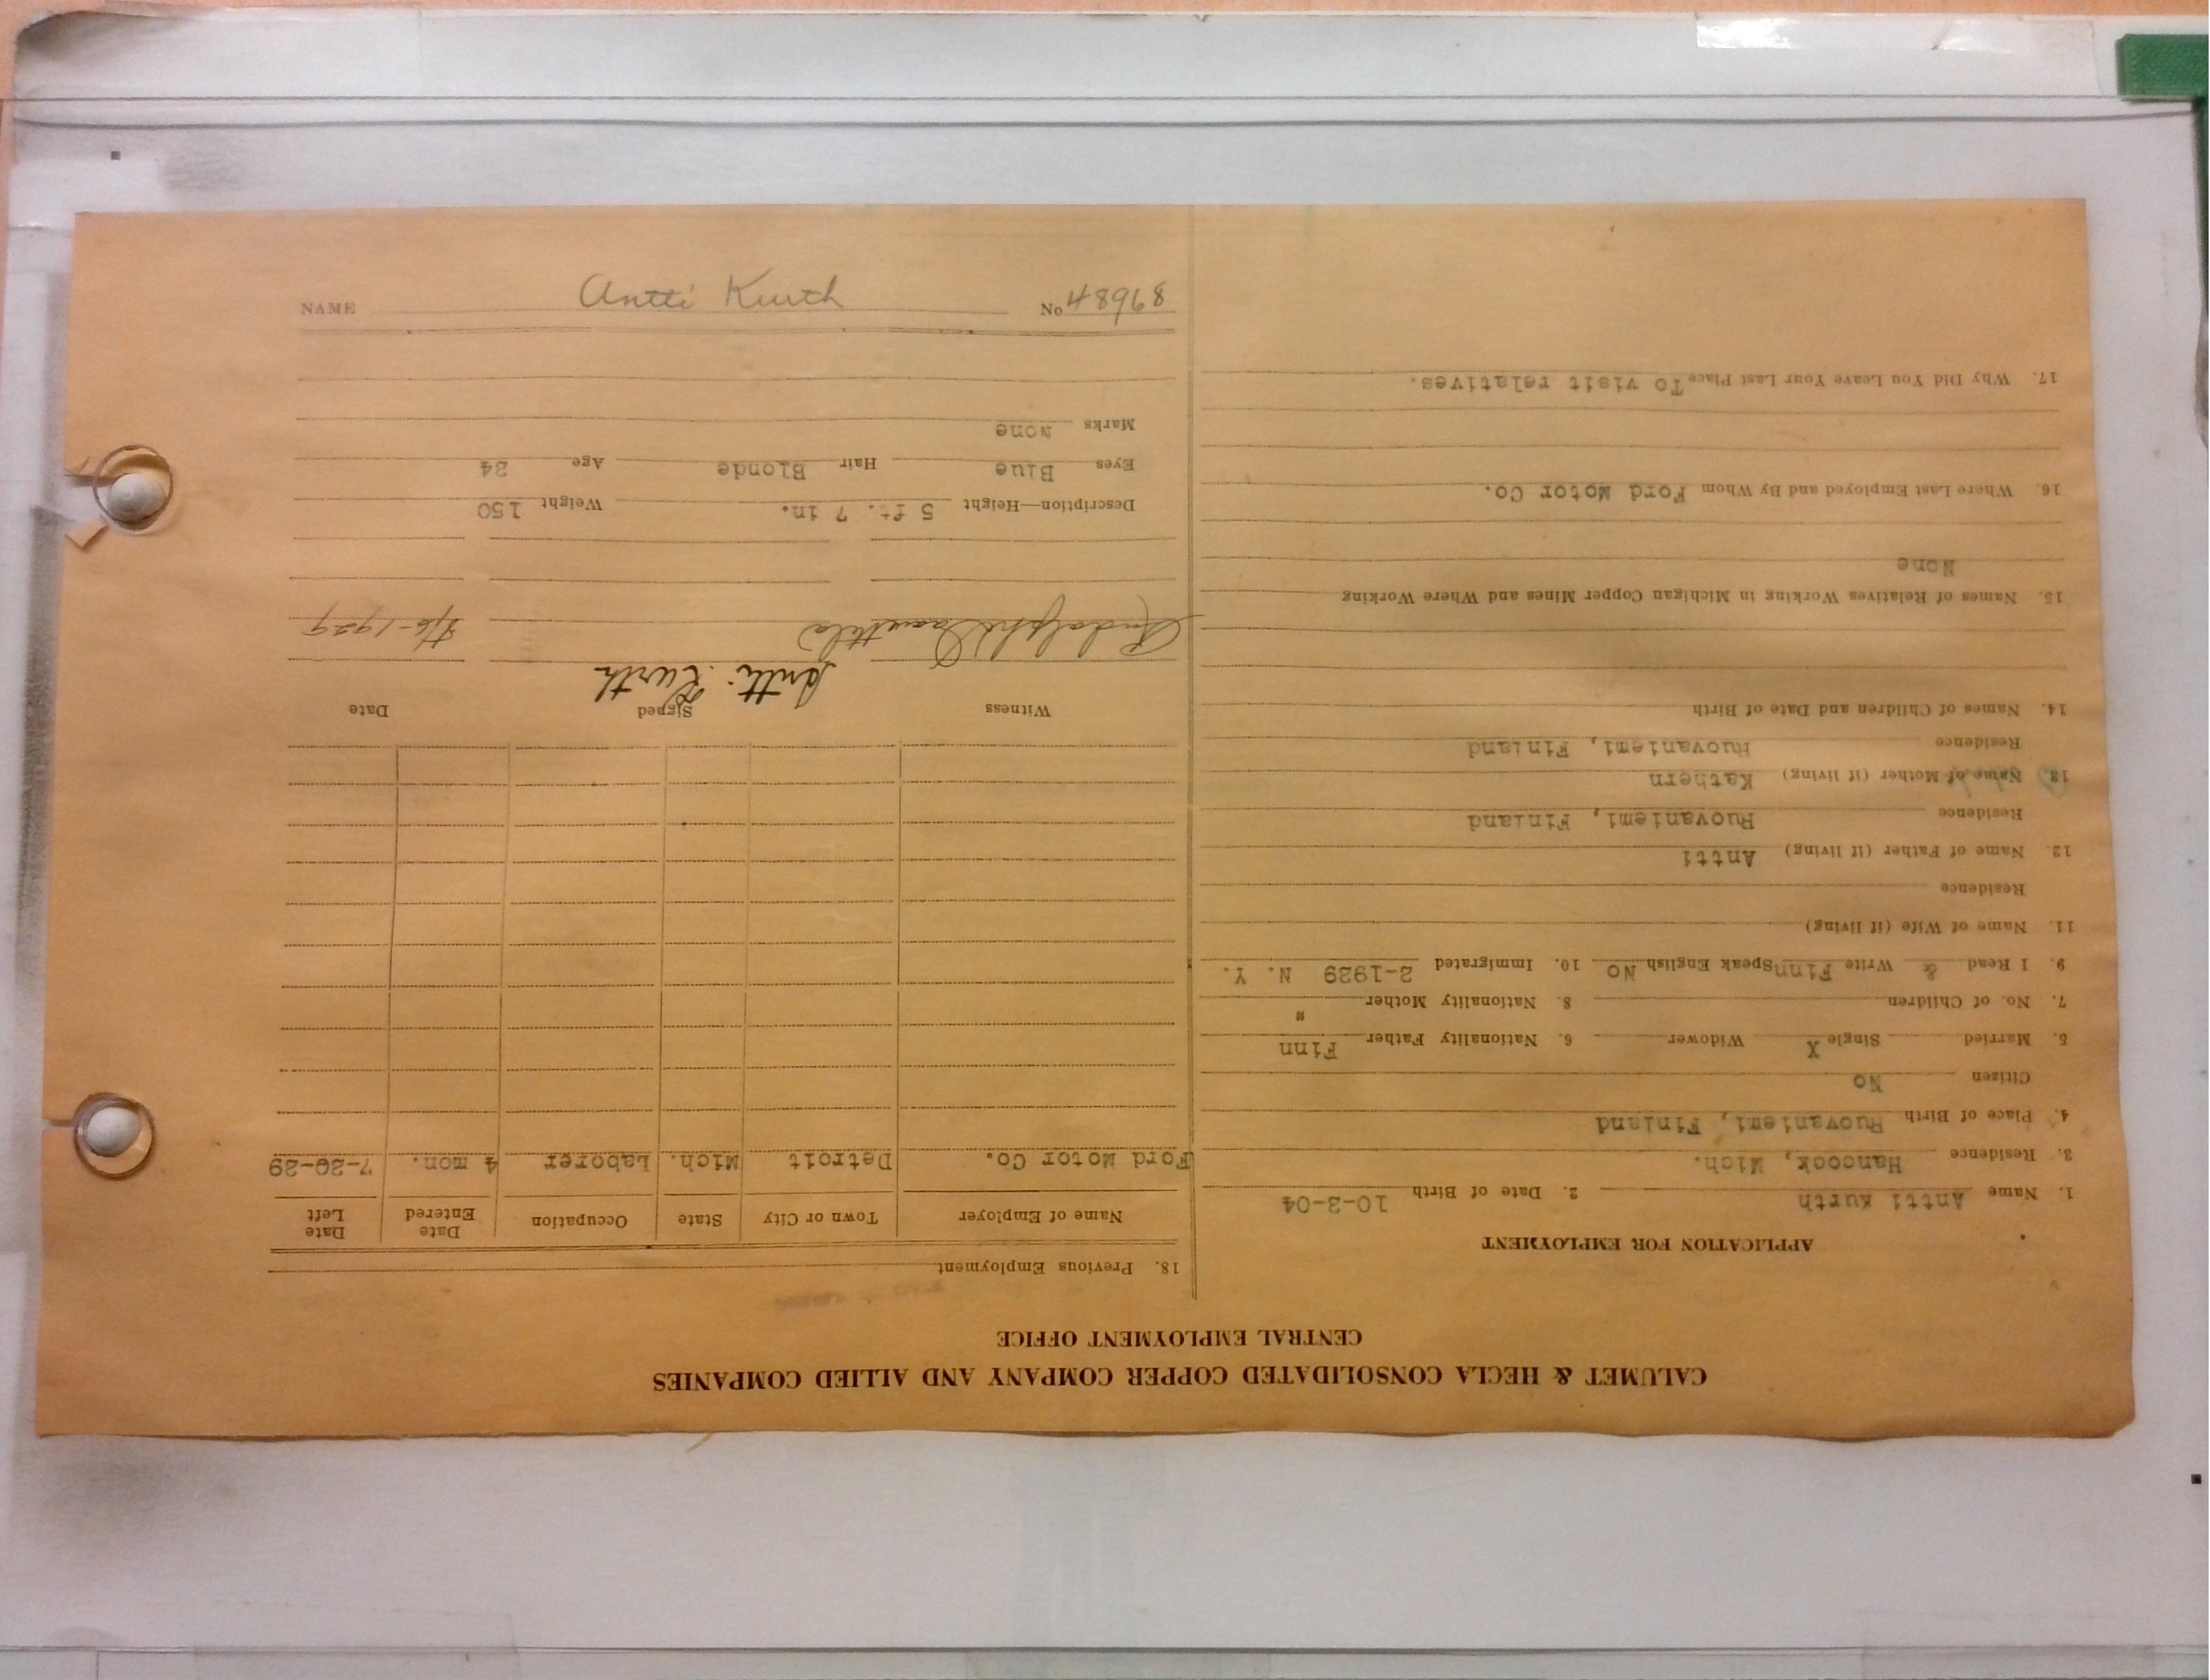 CALUMET & HECLA CONSOLIDATED COPPER COMPANY AND ALLIED COMPANIES
CENTRAL EMPLOYMENT OFFICE
APPLICATION FOR EMPLOYMENT
1. Name Antti Kurth 2. Date of Birth 10-3-04
3. Residence Hancock, Mich.
4. Place of Birth Ruovaniemi, Finland
Citizen No
5. Married Single X Widower 6. Nationality Father Finn
7. No. of Children 8. Nationality Mother "
9. I Read & Write Finn Speak English No 10. Immigrated 2-1929 N. Y.
11. Name of Wife (if living)
Residence
12. Name of Father (if living) Antti
Residence Ruovaniemi, Finland
13. Name of Mother (if living) Kathern
Residence Ruovaniemi, Finland
14. Names of Children and Date of Birth
15. Names of Relatives Working in Michigan Copper Mines and Where Working
None
16. Where Last Employed and By Whom Ford Motor Co.
17. Why Did You Leave Your Last Place To visit relatives.
18. Previous Employment
Name of Employer Town or City State Occupation Date Entered Date Left
Ford Motor Co. Detroit Mich. Laborer 4 mon. 7-20-29
Witness Signed Date
Antti Kurth
Rudolph 8/6-1929
Description—Height 5 ft. 7 in. Weight 150
Eyes Blue Hair Blonde Age 24
Marks None
NAME Antti Kurth No 48968